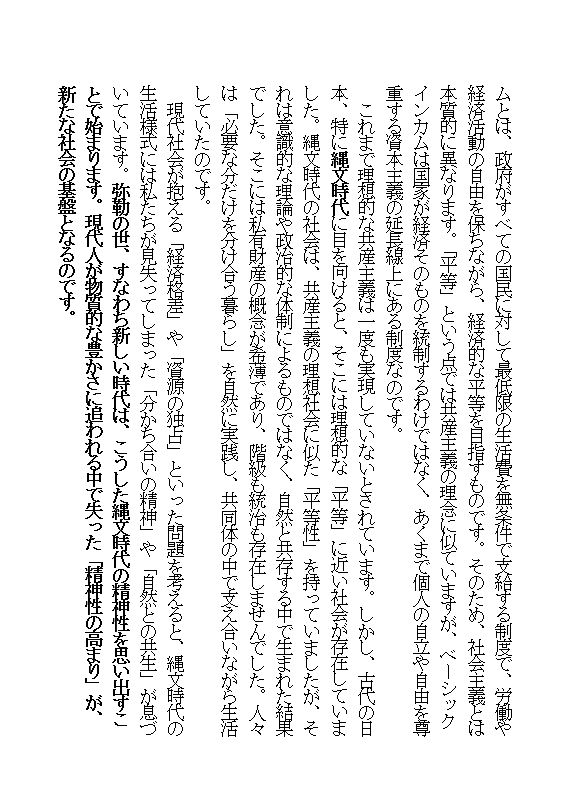 ムとは、政府がすべての国民に対して最低限の生活費を無条件で支給する制度で、労働や
経済活動の自由を保ちながら、経済的な平等を目指すものです。そのため、社会主義とは
本質的に異なります。「平等」という点では共産主義の理念に似ていますが、ベーシック
インカムは国家が経済そのものを統制するわけではなく、あくまで個人の自立や自由を尊
重する資本主義の延長線上にある制度なのです。
これまで理想的な共産主義は一度も実現していないとされています。しかし、古代の日
本、特に縄文時代に目を向けると、そこには理想的な「平等」に近い社会が存在していま
した。縄文時代の社会は、共産主義の理想社会に似た「平等性」を持っていましたが、そ
れは意識的な理論や政治的な体制によるものではなく、自然と共存する中で生まれた結果
でした。そこには私有財産の概念が希薄であり、階級も統治も存在しませんでした。人々
は「必要な分だけを分け合う暮らし」を自然に実践し、共同体の中で支え合いながら生活
していたのです。
現代社会が抱える「経済格差」や「資源の独占」といった問題を考えると、縄文時代の
生活様式には私たちが見失ってしまった「分かち合いの精神」や「自然との共生」が息づ
いています。弥勒の世、すなわち新しい時代は、こうした縄文時代の精神性を思い出すこ
とで始まります。現代人が物質的な豊かさに追われる中で失った「精神性の高まり」が、
新たな社会の基盤となるのです。